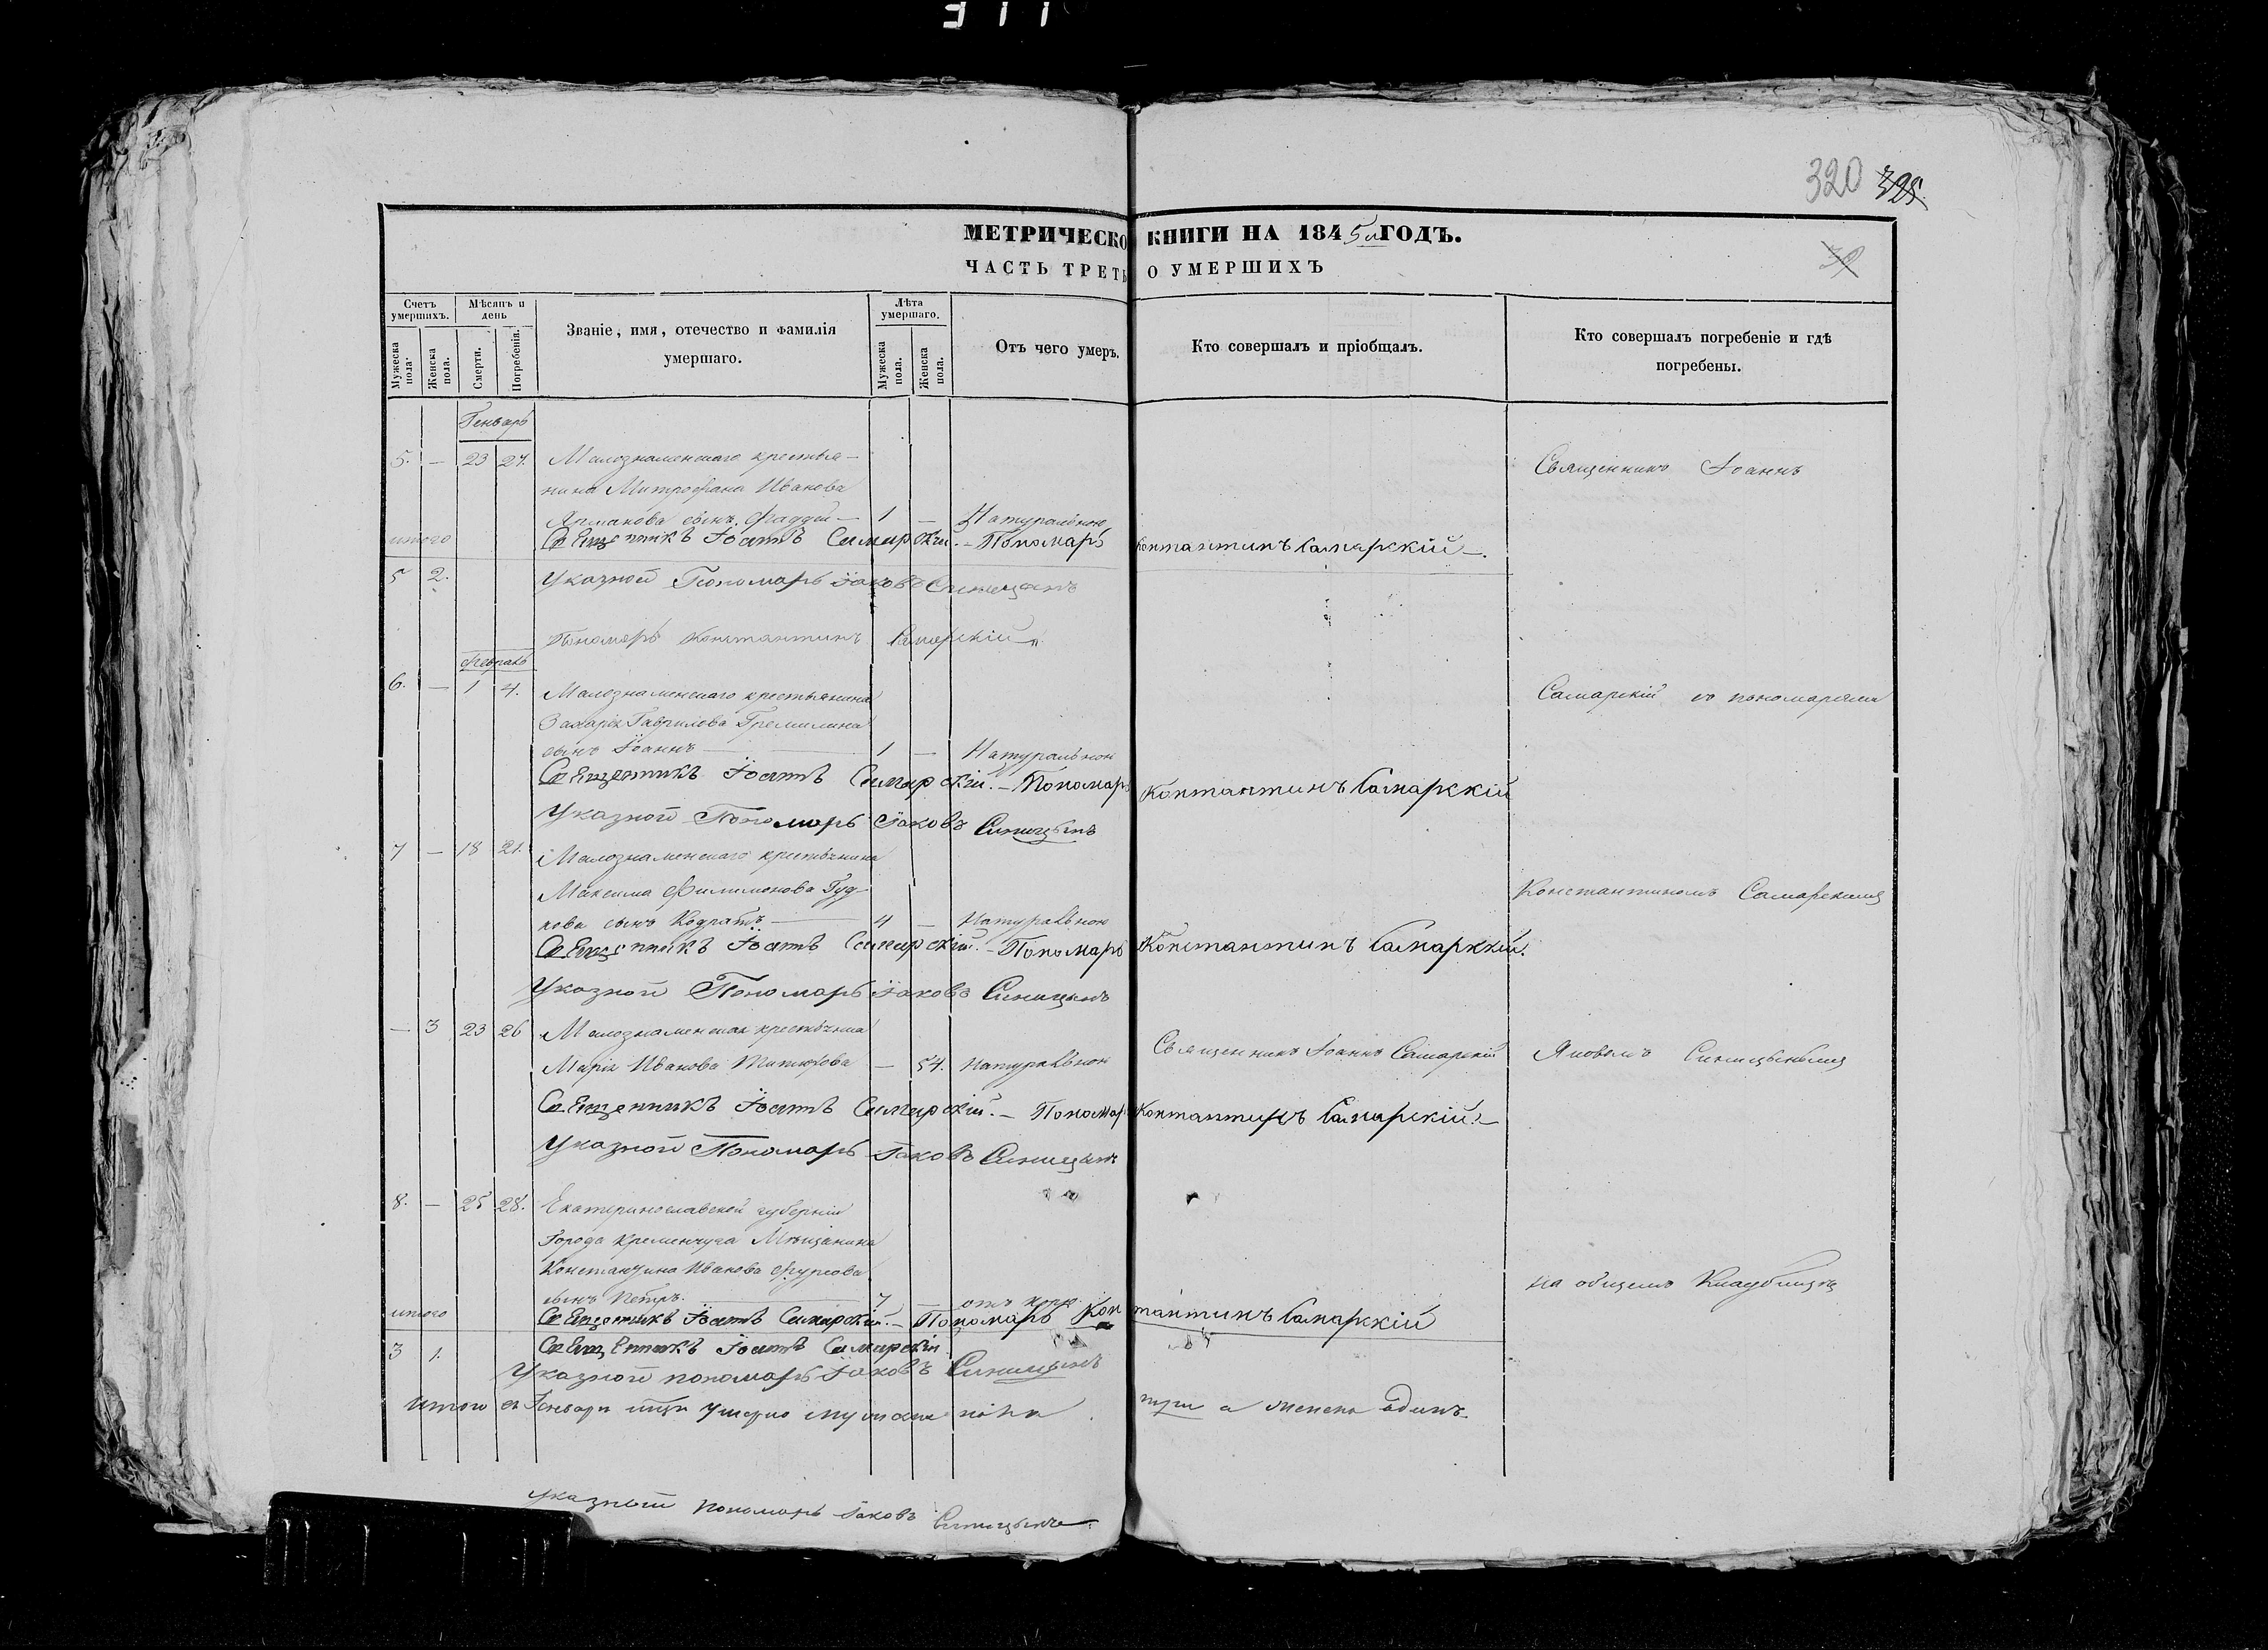 311
320 325
30
МЕТРИЧЕСКО КНИГИ НА 1845й ГОДЪ.
ЧАСТЬ ТРЕТЬ О УМЕРШИХЪ
Счетъ умершихъ.
Мѣсяцъ и день
Званіе, имя, отечество и фамилія умершаго.
Лѣта умершаго.
Отъ чего умеръ.
Кто совершалъ и пріобщалъ.
Кто совершалъ погребеніе и гдѣ погребены.
Мужеска пола.
Женска пола.
Смерти.
Погребенія.
Мужеска пола.
Женска пола.
Генварь
5. — 23 27. Малознаменскаго крестья- Священникъ Іоаннъ
нина Митрофана Иванова
сынъ Фаддей — 1 — Натуральною
итого Священникъ Іоаннъ Самарскій. – Пономарь Контантинъ Самарскій
5 2. Указной Пономарь Іаковъ Синицынъ
Пономарь Константинъ Самарскій
Февраль
6. — 1 4. Малознаменскаго крестьянина Самарскій со пономарями
Захарія Гаврилова Гремилина
сынъ Іоаннъ — 1 — Натуральною
Священникъ Іоаннъ Самарскій. – Пономарь Контантинъ Самарскій
Указной Пономарь Іаковъ Синицынъ
7 — 18 21. Малознаменскаго крестьянина
Максима Филимонова Гуд- Константиномъ Самарскимъ
кова сынъ Кодратъ — 4 — Натуральною
Священникъ Іоаннъ Самарскій. – Пономарь Константинъ Самарскій.
Указной Пономарь Іаковъ Синицынъ
— 3 23 26 Малознаменская крестьянка Священникъ Іоаннъ Самарскій Яковомъ Синицынымъ
Марія Иванова — 54. Натуральною
Священникъ Іоаннъ Самарскій. – Пономарь Контантинъ Самарскій
Указной Пономарь Іаковъ Синицынъ
8. — 25 28. Екатеринославской губерніи
города Кременчуга Мѣщанина
Константина Иванова Фурсова на общемъ Кладбищѣ
сынъ Петръ. — 7 — отъ
итого Священникъ Іоаннъ Самарскій. – Пономарь Контантинъ Самарскій
3 1. Священникъ Іоаннъ Самарскій
Указной пономарь Іаковъ Синицынъ
Итого въ умерло мужеска пола три а женска одинъ.
Указной пономарь Іаковъ Синицынъ